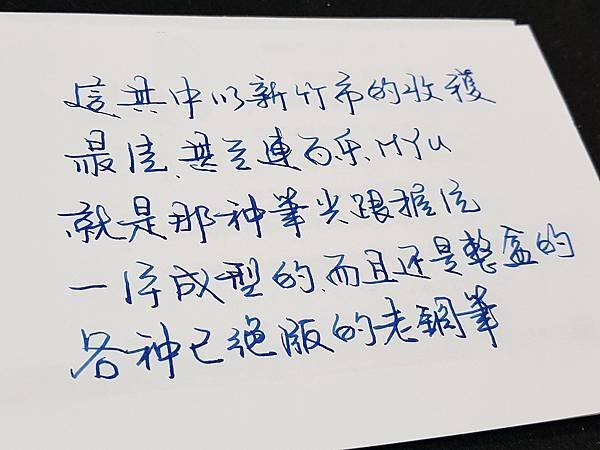 這其中以新竹市的收穫
最佳、甚至連百乐 MYU
就是那种筆尖跟握位
一体成型的、而且还是整盒的
各种已絕版的老鋼筆